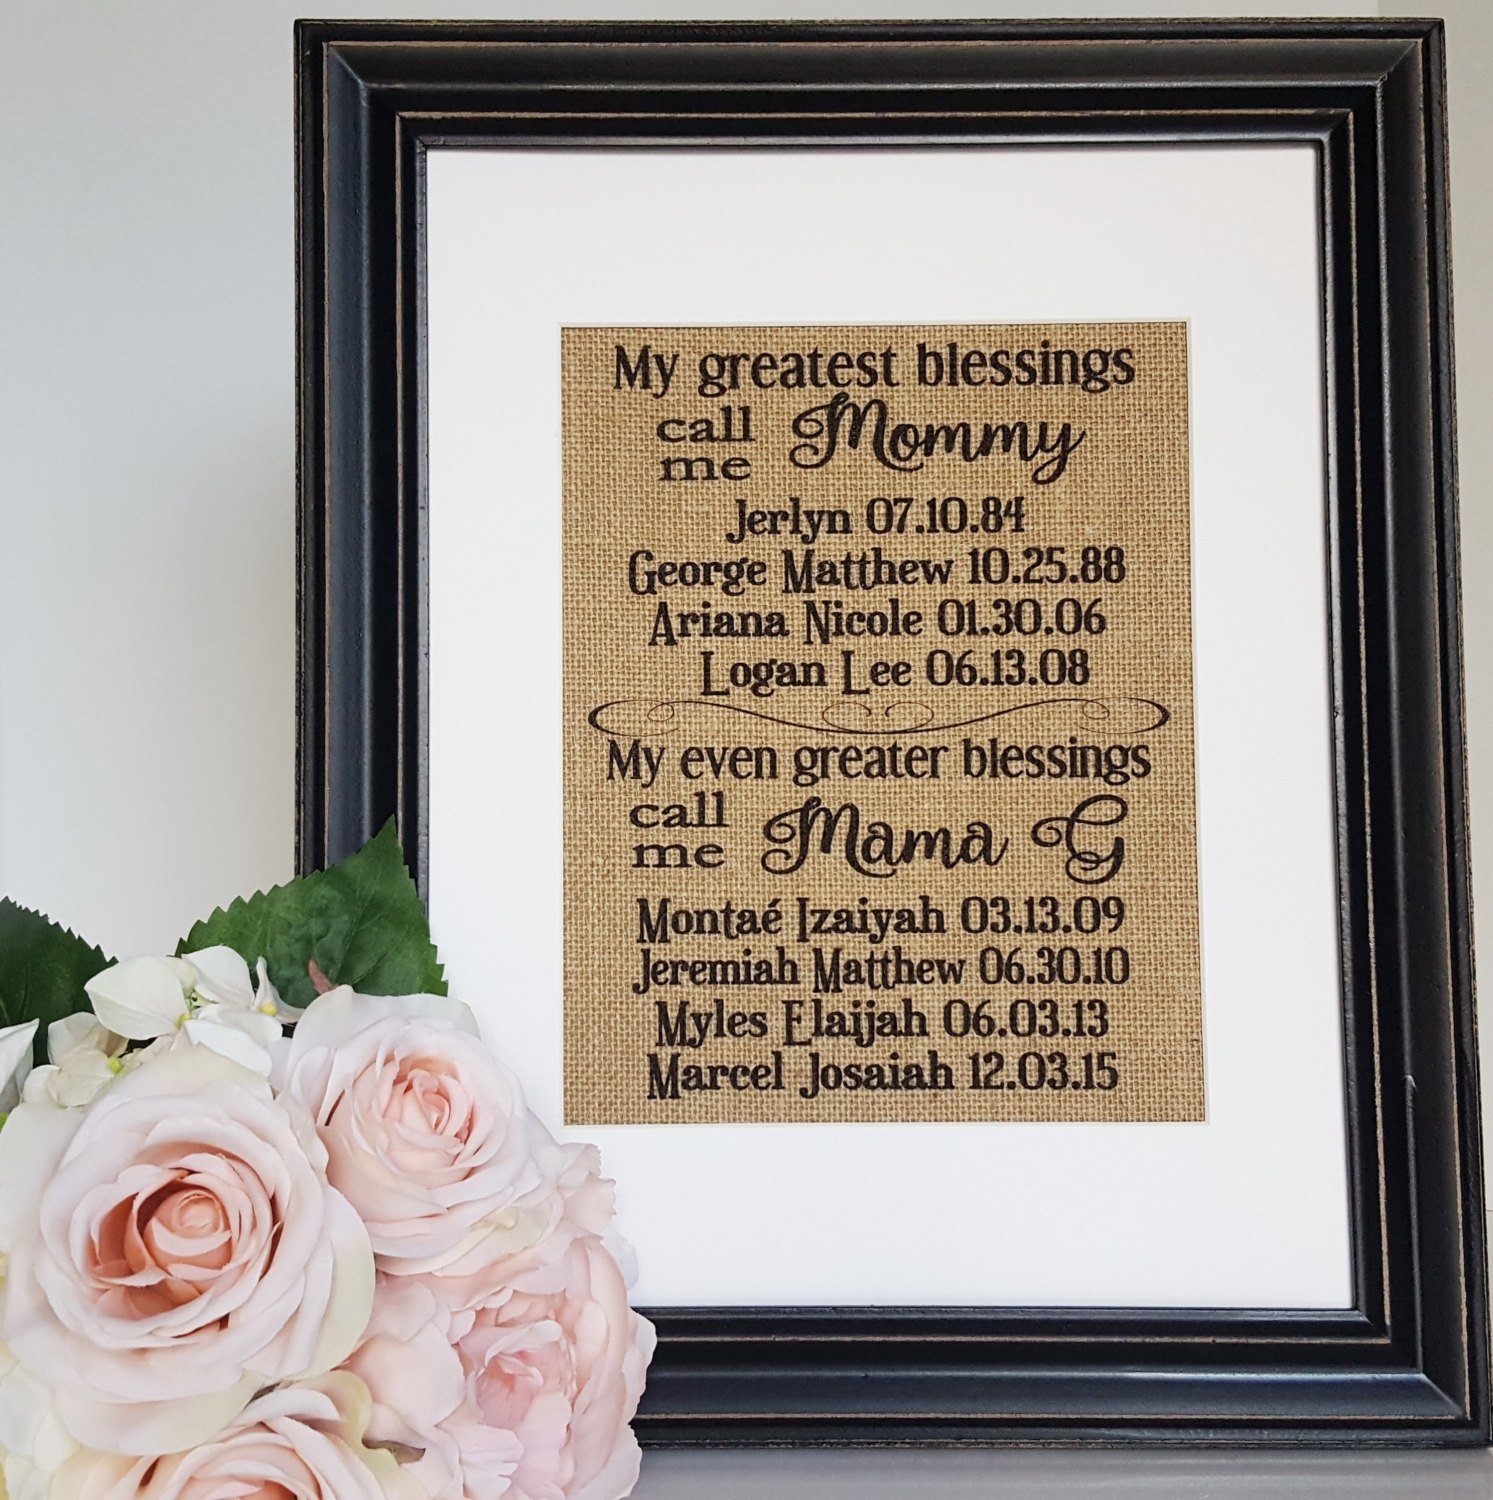 My greatest blessings
call me Mommy
Jerlyn 07.10.84
George Matthew 10.25.88
Ariana Nicole 01.30.06
Logan Lee 06.13.08
My even greater blessings
call me Mama G
Montaé Izaiyah 03.13.09
Jeremiah Matthew 06.30.10
Myles Elaijah 06.03.13
Marcel Josaiah 12.03.15